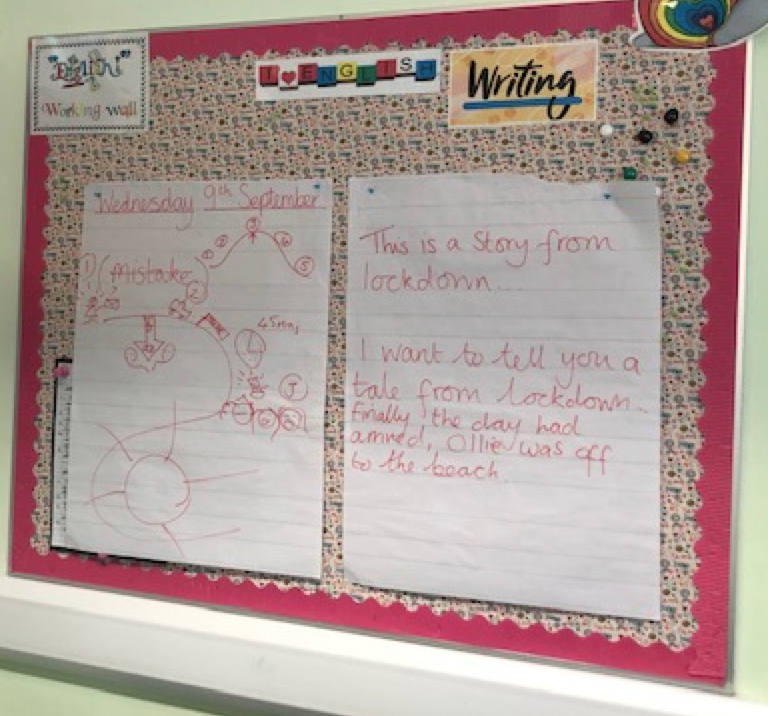 "English"
Working wall
I ♥ ENGLISH
Writing
Wednesday 9th September
① ② ③ ④ ⑤
① (mistake)
②
45mins
This is a Story from
lockdown...
I want to tell you a
tale from lockdown..
Finally the day had
arrived, Ollie was off
to the beach.